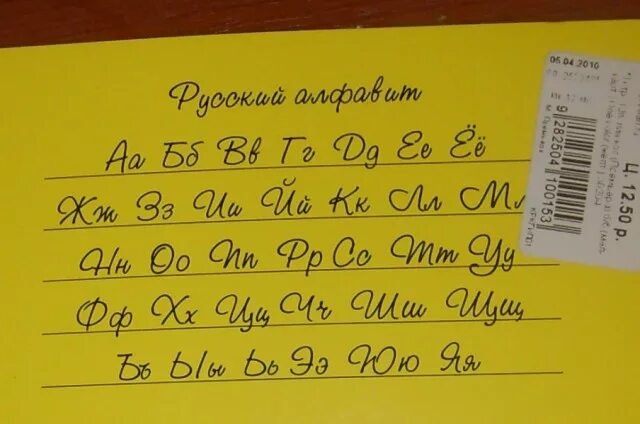 Русский алфавит
Аа Бб Вв Гг Дд Ее Ёё
Жж Зз Ии Йй Кк Лл М
Нн Оо Пп Рр Сс Тт Уу
Фф Хх Цц Чч Шш Щщ
Ъъ Ыы Ьь Ээ Юю Яя
05.04.2010
9 282504 100153
Ц. 12.50 р.